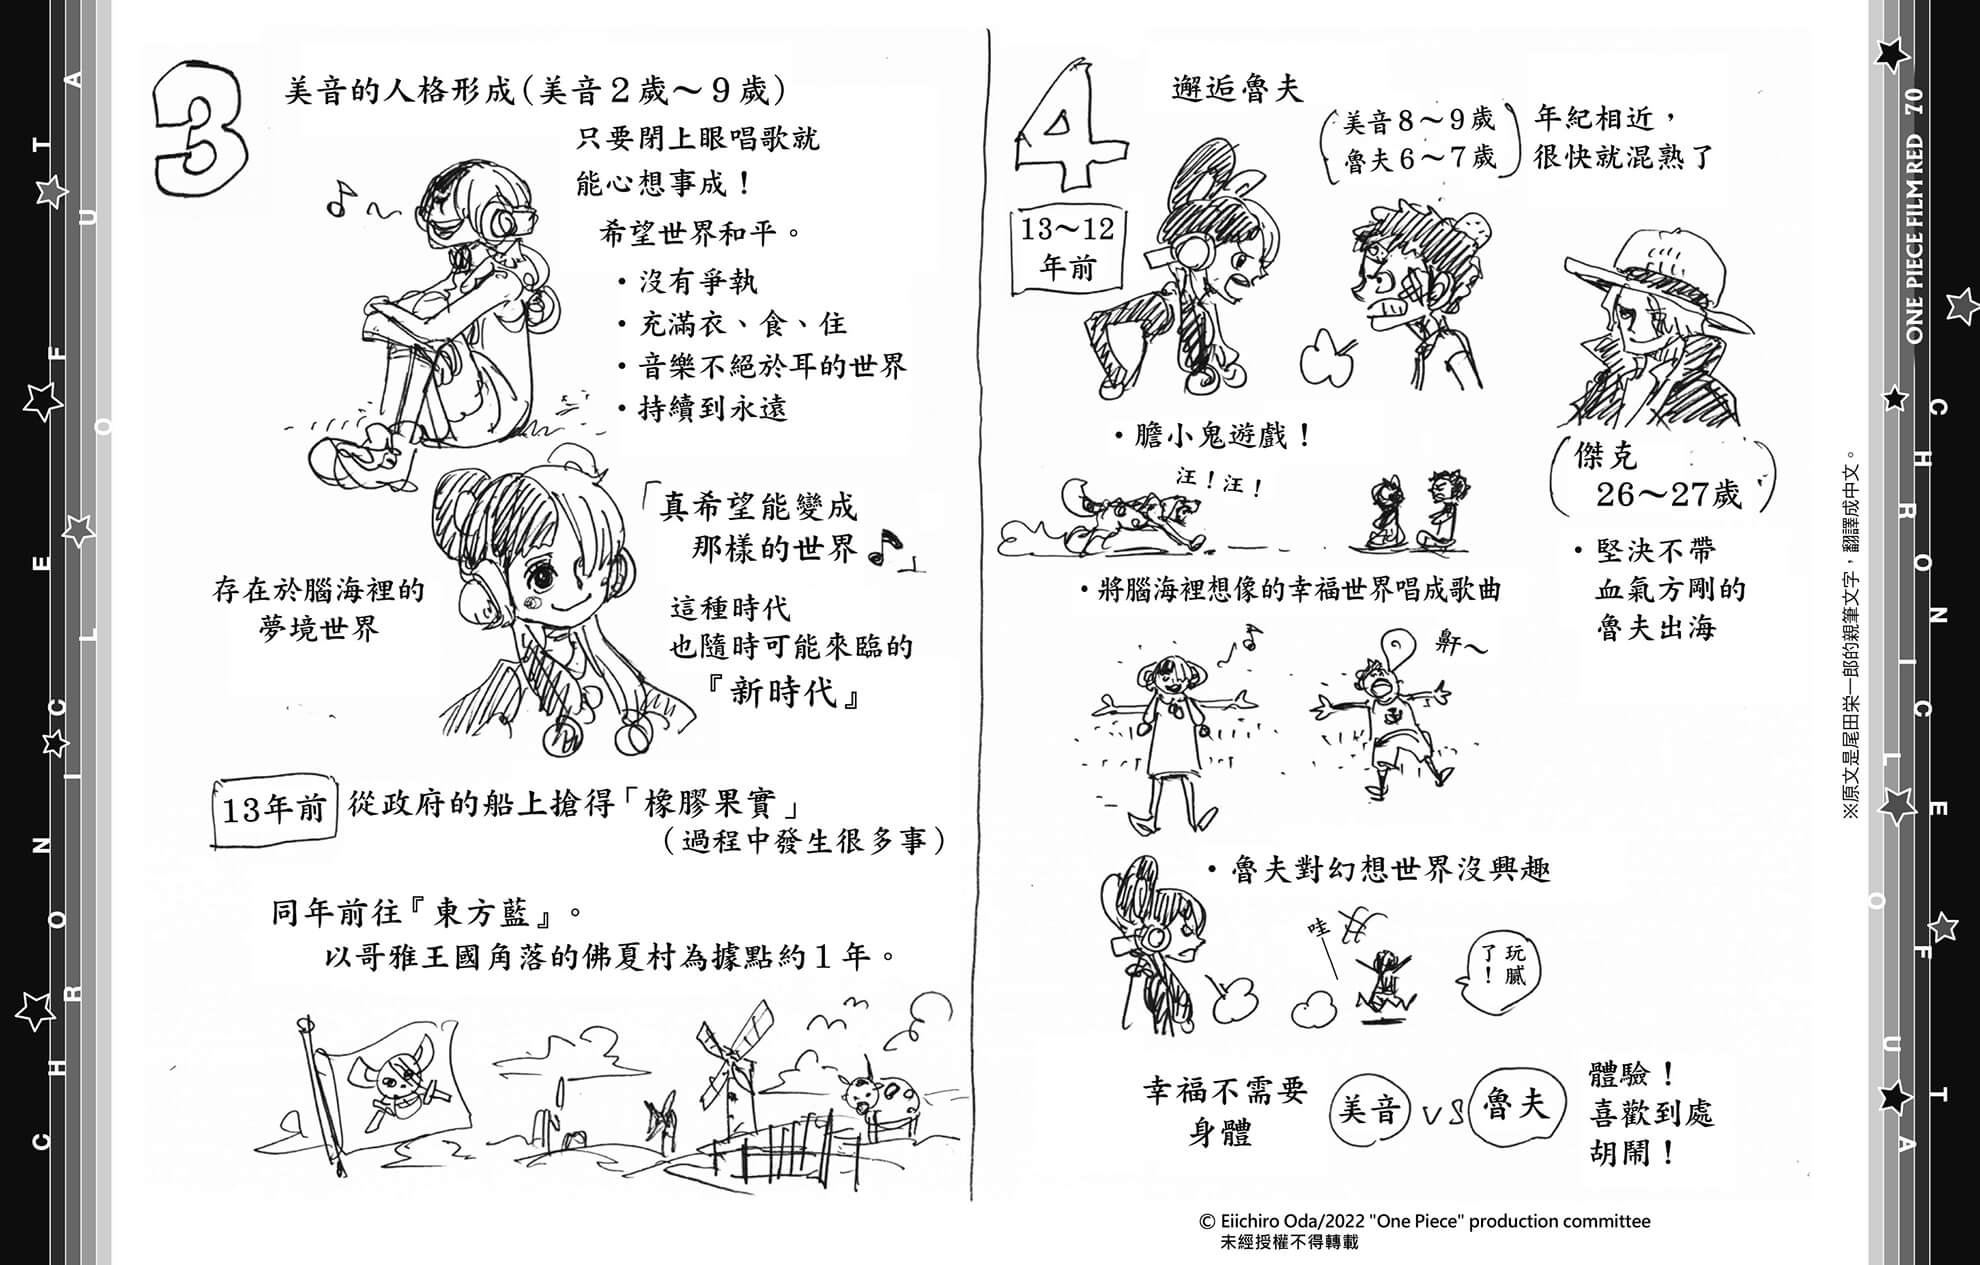 3
美音的人格形成(美音2歲～9歲)
只要閉上眼唱歌就
能心想事成！
希望世界和平。
・沒有爭執
・充滿衣、食、住
・音樂不絕於耳的世界
・持續到永遠
「真希望能變成
那樣的世界♪」
存在於腦海裡的
夢境世界
這種時代
也隨時可能來臨的
『新時代』
13年前
從政府的船上搶得「橡膠果實」
(過程中發生很多事)
同年前往『東方藍』。
以哥雅王國角落的佛夏村為據點約1年。
4
邂逅魯夫
(美音8～9歲
魯夫6～7歲)
年紀相近，
很快就混熟了
13～12
年前
・膽小鬼遊戲！
汪！汪！
(傑克
26～27歲)
・堅決不帶
血氣方剛的
魯夫出海
・將腦海裡想像的幸福世界唱成歌曲
鼾～
・魯夫對幻想世界沒興趣
哇
玩膩
了！
幸福不需要
身體
美音 VS 魯夫
體驗！
喜歡到處
胡鬧！
※原文是尾田栄一郎的親筆文字，翻譯成中文。
© Eiichiro Oda/2022 "One Piece" production committee
未經授權不得轉載
CHRONICLE OF UTA
CHRONICLE OF UTA
ONE PIECE FILM RED 70